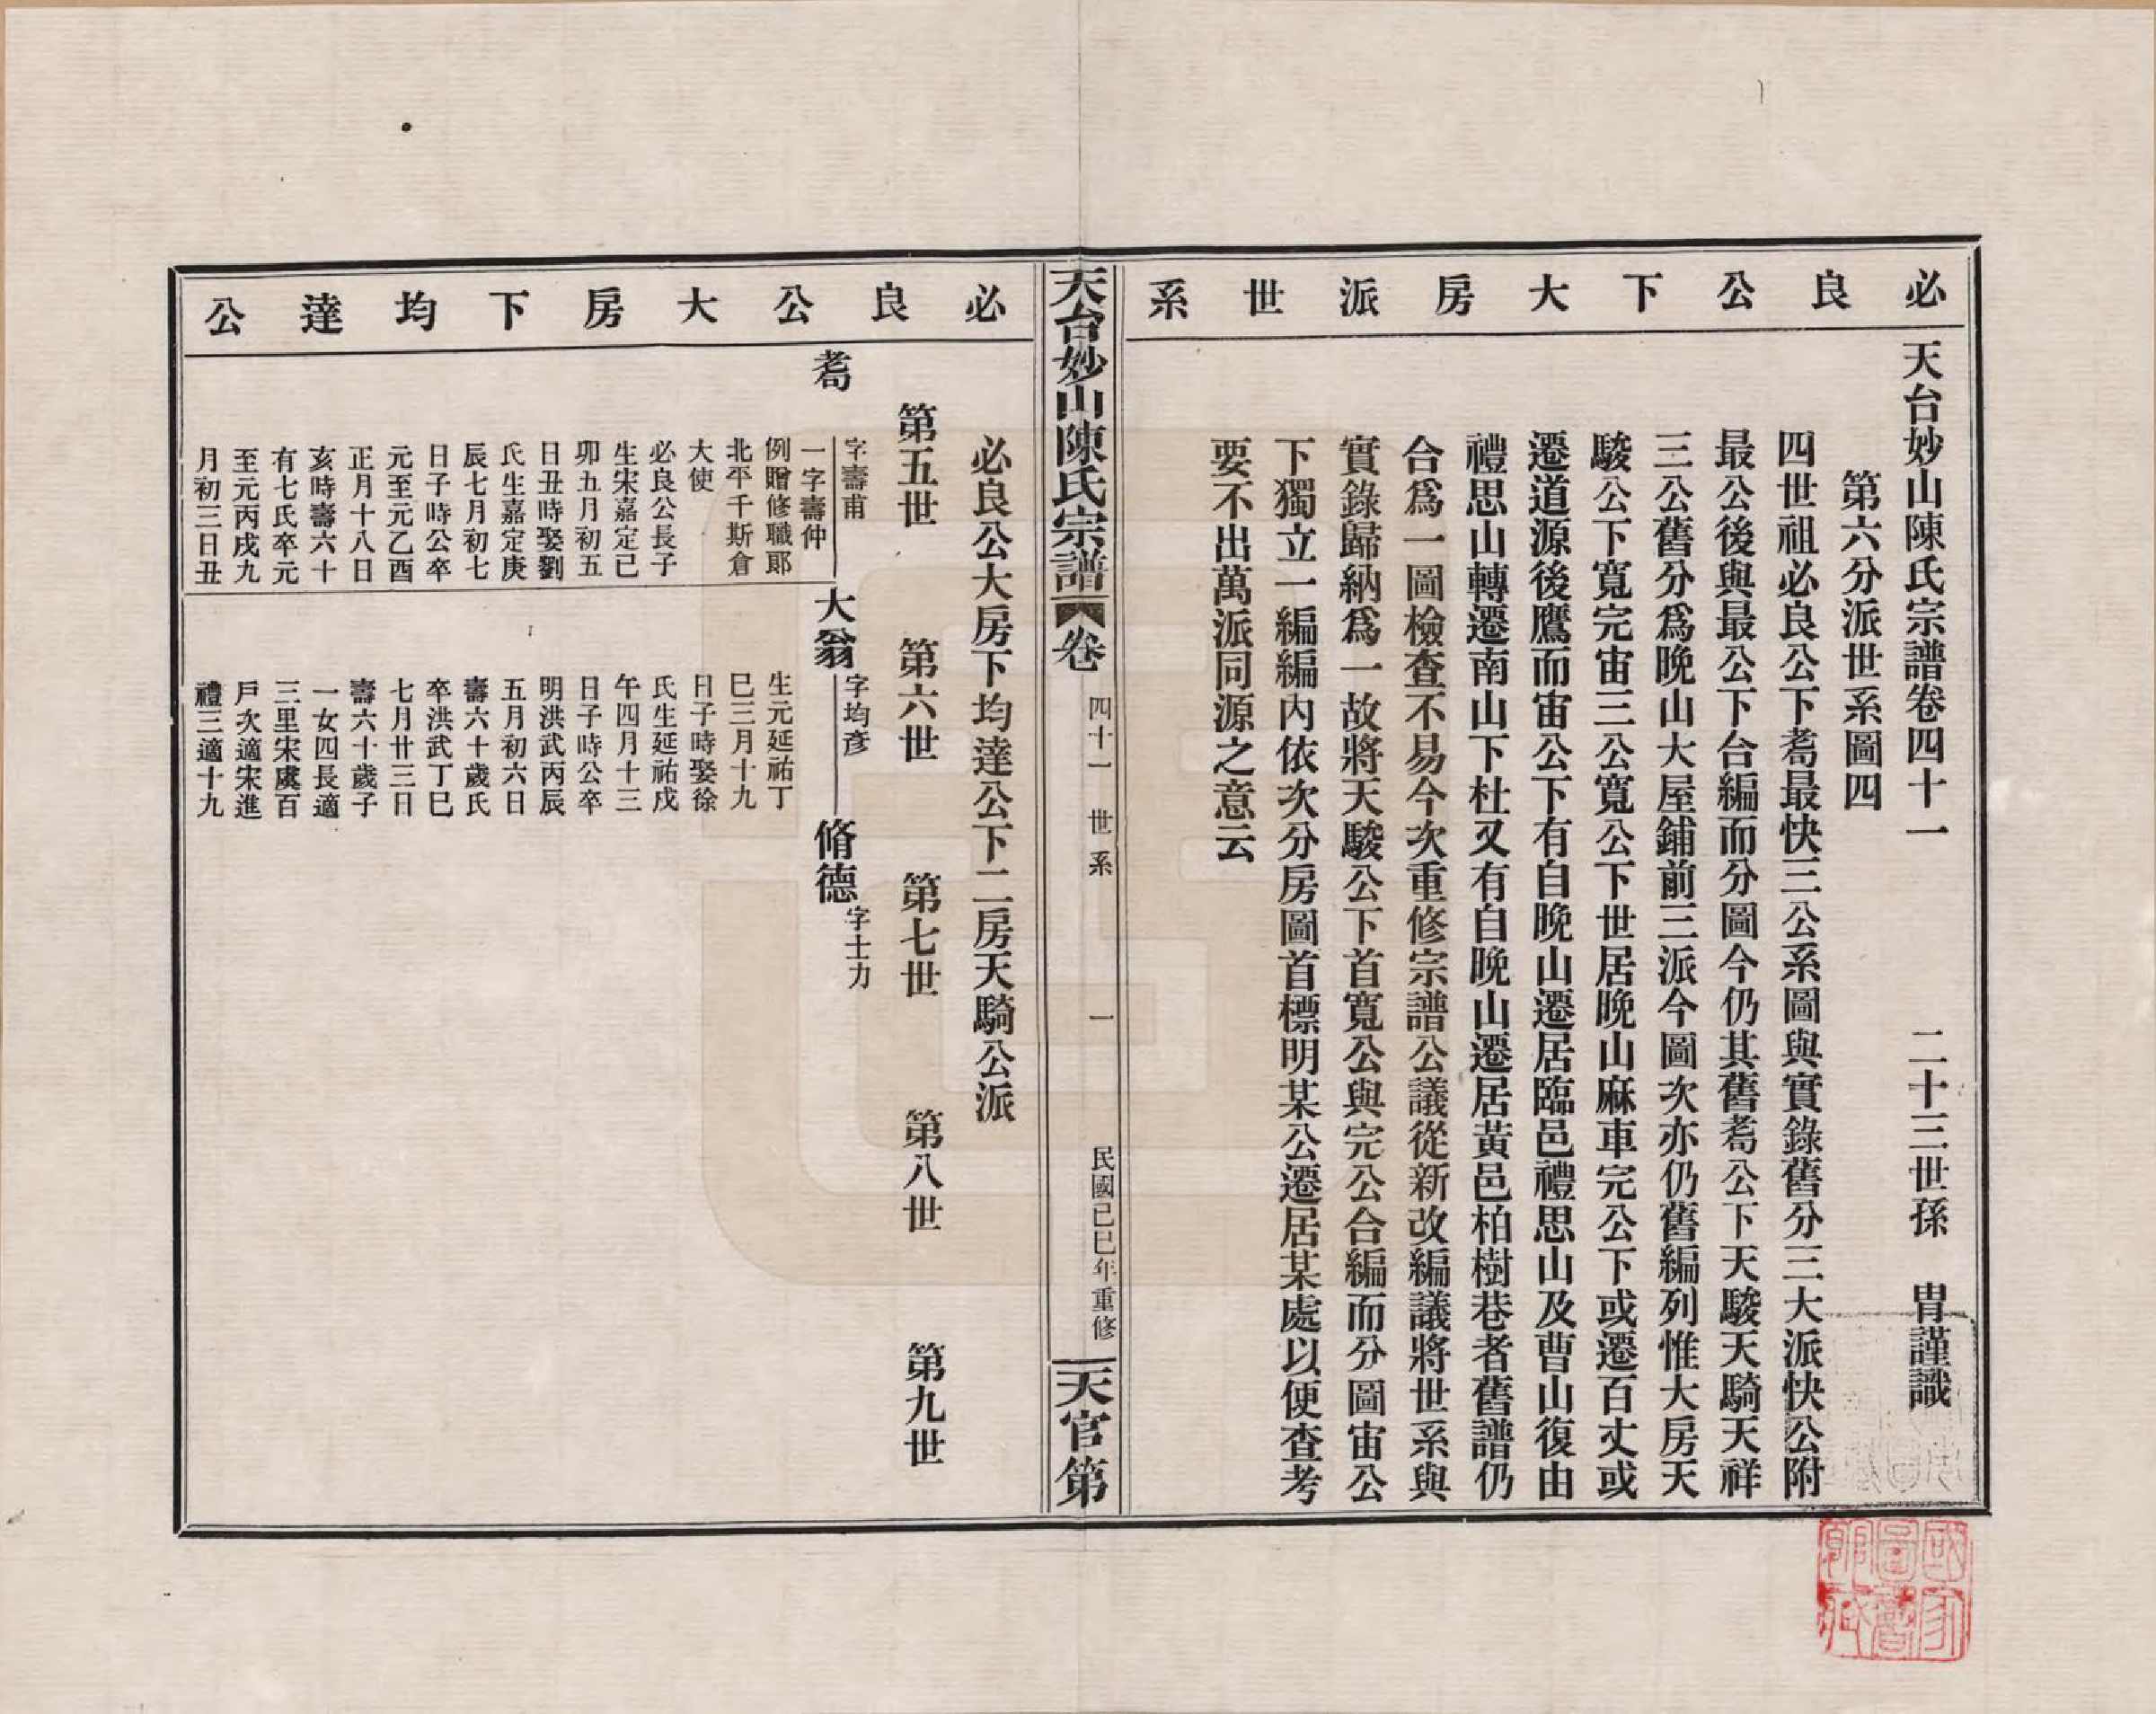 必良公下大房派世系
天台妙山陳氏宗譜卷四十一　二十三世孫　胄謹識
第六分派世系圖四
四世祖必良公下耇最快三公系圖與實錄舊分三大派快公附
最公後與最公下台編而分圖今仍其舊耇公下天駿天騎天祥
三公舊分爲晚山大屋鋪前三派今圖次亦仍舊編列惟大房天
駿公下寬完宙三公寬公下世居晚山麻車完公下或遷百丈或
遷道源後鷹而宙公下有自晚山遷居臨邑禮思山及曹山復由
禮思山轉遷南山下杜又有自晚山遷居黃邑柏樹巷者舊譜仍
合爲一圖檢查不易今次重修宗譜公議從新改編議將世系與
實錄歸納爲一故將天駿公下首寬公與完公合編而分圖宙公
下獨立一編編內依次分房圖首標明某公遷居某處以便查考
要不出萬派同源之意云
天台妙山陳氏宗譜　卷　四十一　世系　一　民國己巳年重修　天官第
必良公大房下均達公
必良公大房下均達公下二房天騎公派
第五世　第六世　第七世　第八世　第九世
耇
字壽甫
一字壽仲
例贈修職郎
北平千斯倉
大使
必良公長子
生宋嘉定己
卯五月初五
日丑時娶劉
氏生嘉定庚
辰七月初七
日子時公卒
元至元乙酉
正月十八日
亥時壽六十
有七氏卒元
至元丙戌九
月初三日丑
大翁
字均彥
生元延祐丁
巳三月十九
日子時娶徐
氏生延祐戊
午四月十三
日子時公卒
明洪武丙辰
五月初六日
壽六十歲氏
卒洪武丁巳
七月廿三日
壽六十歲子
一女四長適
三里宋處百
戶次適宋進
禮三適十九
脩德
字士力
國家圖書館藏